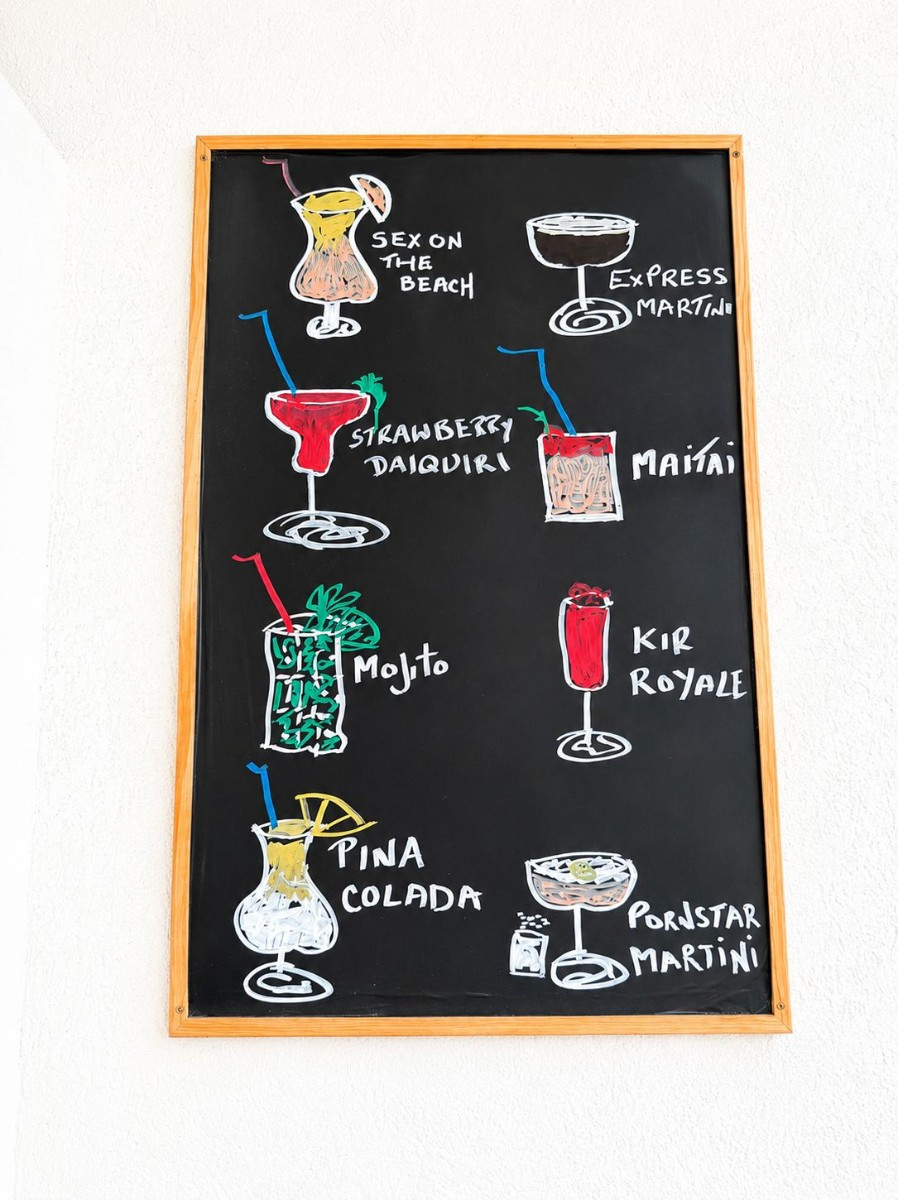 SEX ON
THE
BEACH
EXPRESS
MARTINI
STRAWBERRY
DAIQUIRI
MAITAI
Mojito
KIR
ROYALE
PINA
COLADA
PORNSTAR
MARTINI